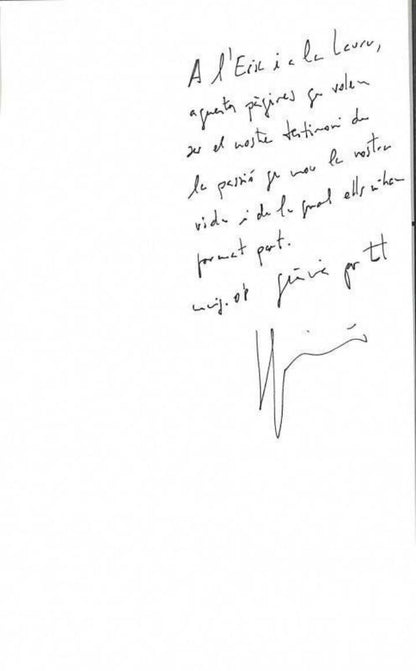 A l'Eric i a la Laura,
aquestes pàgines que volen
ser el nostre testimoni de
la passió que mou la nostra
vida i de la qual ells n'han
format part.
maig.08 Gràcies per tot